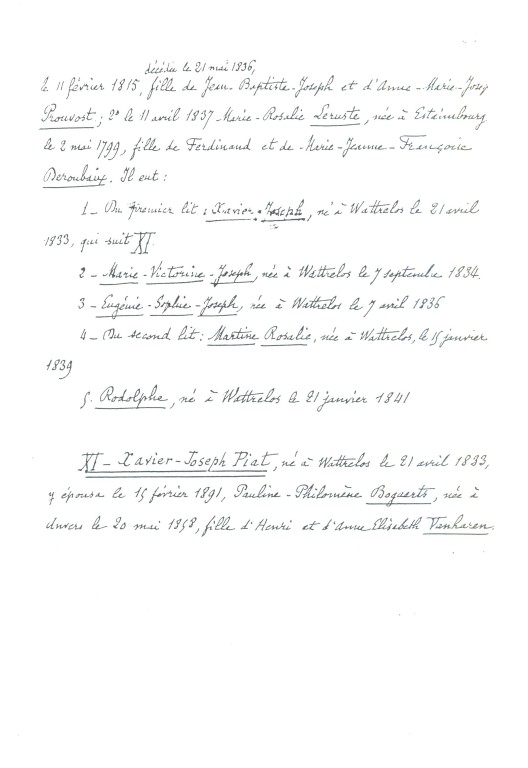 décédée le 21 mai 1836,
le 11 février 1815, fille de Jean-Baptiste-Joseph et d'Anne-Marie-Josep
Prouvost; 2° le 11 avril 1837 Marie-Rosalie Leruste, née à Estaimbourg
le 2 mai 1799, fille de Ferdinand et de Marie-Jeanne-Françoise
Deroubaix. Il eut :
1_ Du premier lit : Xavier-Joseph, né à Wattrelos le 21 avril
1833, qui suit XI.
2_ Marie-Victorine-Joseph, née à Wattrelos le 7 septembre 1834.
3_ Eugénie-Sophie-Joseph, née à Wattrelos le 7 avril 1836
4_ Du second lit : Martine Rosalie, née à Wattrelos, le 15 janvier
1839
5. Rodolphe, né à Wattrelos le 21 janvier 1841
XI_ Xavier-Joseph Piat, né à Wattrelos le 21 avril 1833,
y épousa le 15 février 1891, Pauline-Philomène Bogaerts, née à
Anvers le 20 mai 1858, fille d'Henri et d'Anne Elisabeth Vanharen.